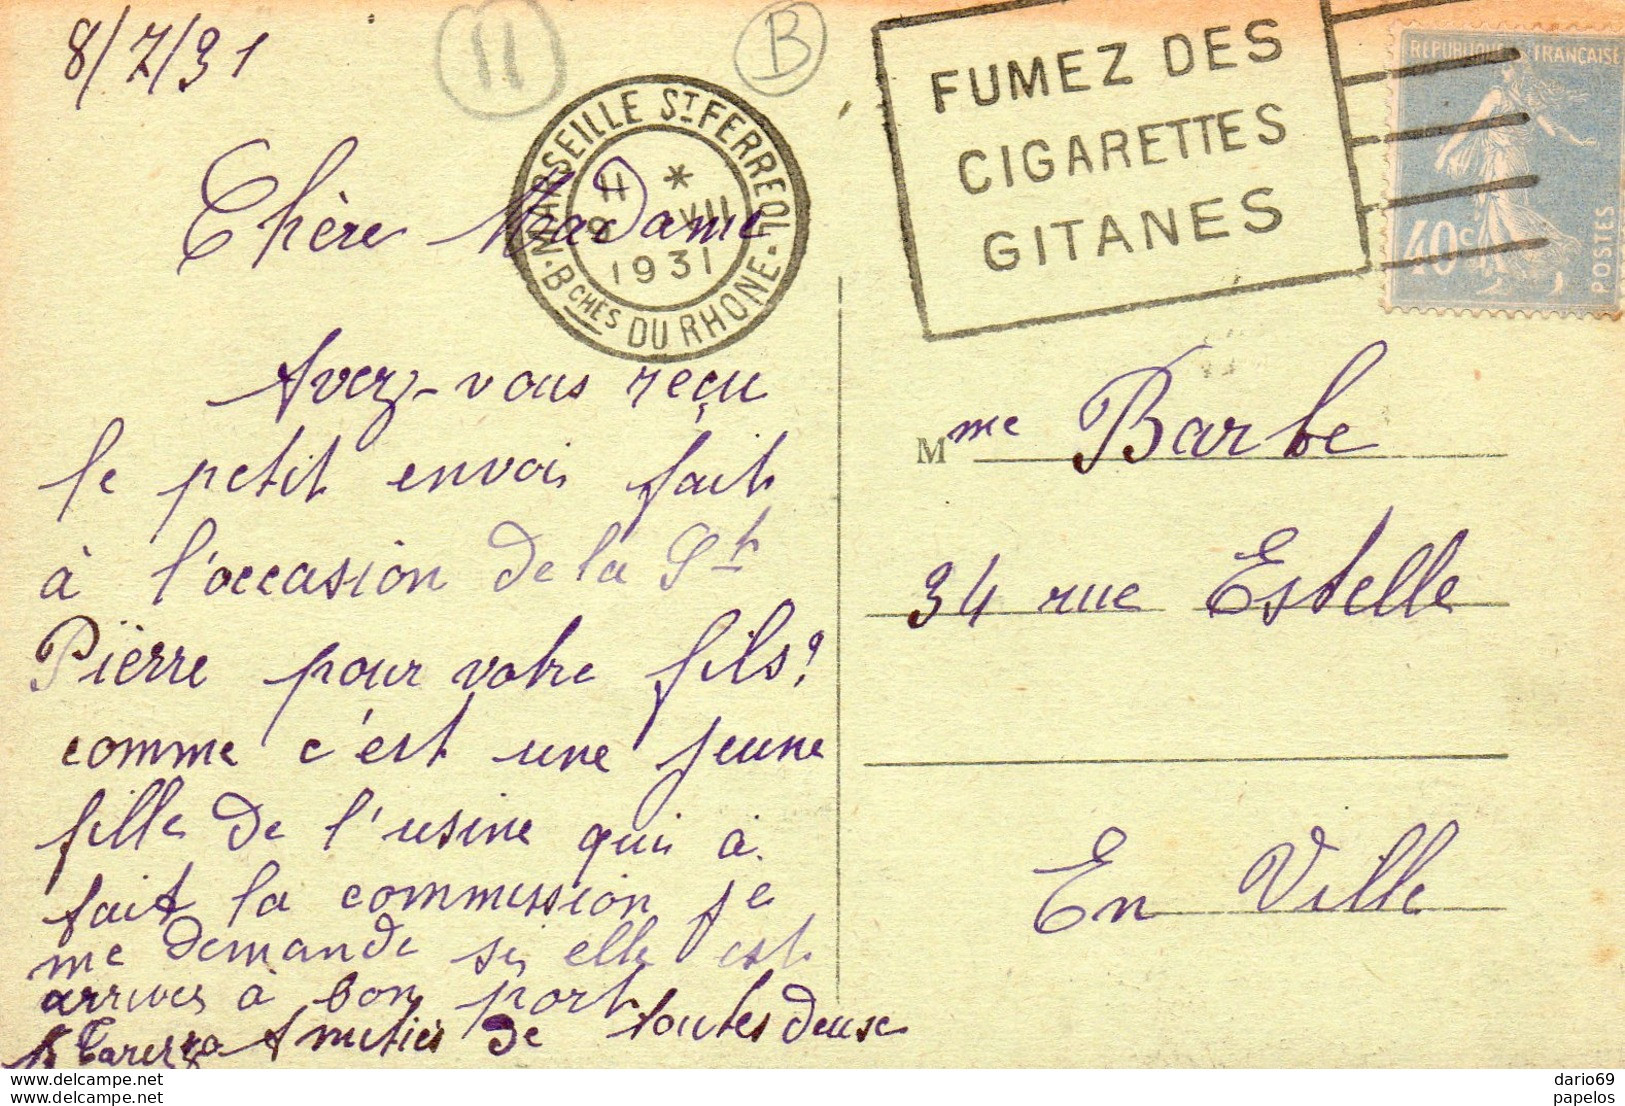 8/7/31
11
B
MARSEILLE ST FERREOL
11 *
9 VII
1931
BCHES DU RHONE
FUMEZ DES
CIGARETTES
GITANES
REPUBLIQUE FRANÇAISE
40c
POSTES
Chère Madame
Avez-vous reçu
le petit envoi fait
à l'occasion de la St
Pïerre pour votre fils?
comme c'est une jeune
fille de l'usine qui à
fait la commission je
me demande si elle est
arrivés à bon port
Amitiés de toutes deuse
Mme Barbe
34 rue Estelle
En Ville
le carnet du collectionneur et du papelos
dario69
papelos